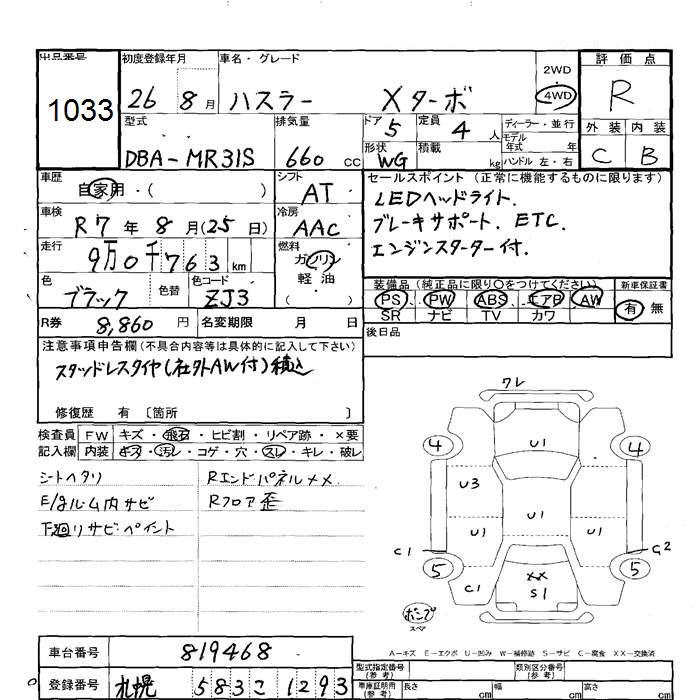 出品番号 初度登録年月 車名・グレード 評価点
1033 26 8月 ハスラー Xターボ 2WD 4WD R
型式 排気量 ドア 5 定員 4 人 ディーラー・並行 外装 内装
DBA-MR31S 660 cc 形状 WG 積載 kg モデル年式 年 ハンドル 左・右 C B
車歴 自家用・( ) シフト AT セールスポイント (正常に機能するものに限ります)
車検 R7年8月(25日) 冷房 AAC LEDヘッドライト.
走行 9万0千763km 燃料 ガソリン ブレーキサポート. ETC.
軽油 エンジンスターター付.
色 ブラック 色替 色コード ZJ3 ( ) 装備品 (純正品に限り○をつけてください) 新車保証書
PS PW ABS エアB AW 有 無
R券 8,860円 名変期限 月 日 SR ナビ TV カワ
注意事項申告欄 (不具合内容等は具体的に記入して下さい) 後日品
スタッドレスタイヤ(社外AW付)積込
修復歴 有 〔箇所 〕
検査員 FW キズ・飛石・ヒビ割・リペア跡・×要
記入欄 内装 キズ・汚レ・コゲ・穴・スレ・キレ・破レ
シートヘタリ Rエンドパネルメメ
E/gルーム内サビ Rフロア歪
下廻リサビ・ペイント
ワレ
4 U1 4
U3
U1 U1 U1
C1 G2
5 XX 5
C1 S1
ボンブ
スペア
A-キズ E-エクボ U-凹み W-補修跡 S-サビ C-腐食 XX-交換済
車台番号 819468 型式指定番号 (参考) 類別区分番号 (参考)
登録番号 札幌 583こ1293 車庫証明用 (参考) 長さ cm 幅 cm 高さ cm